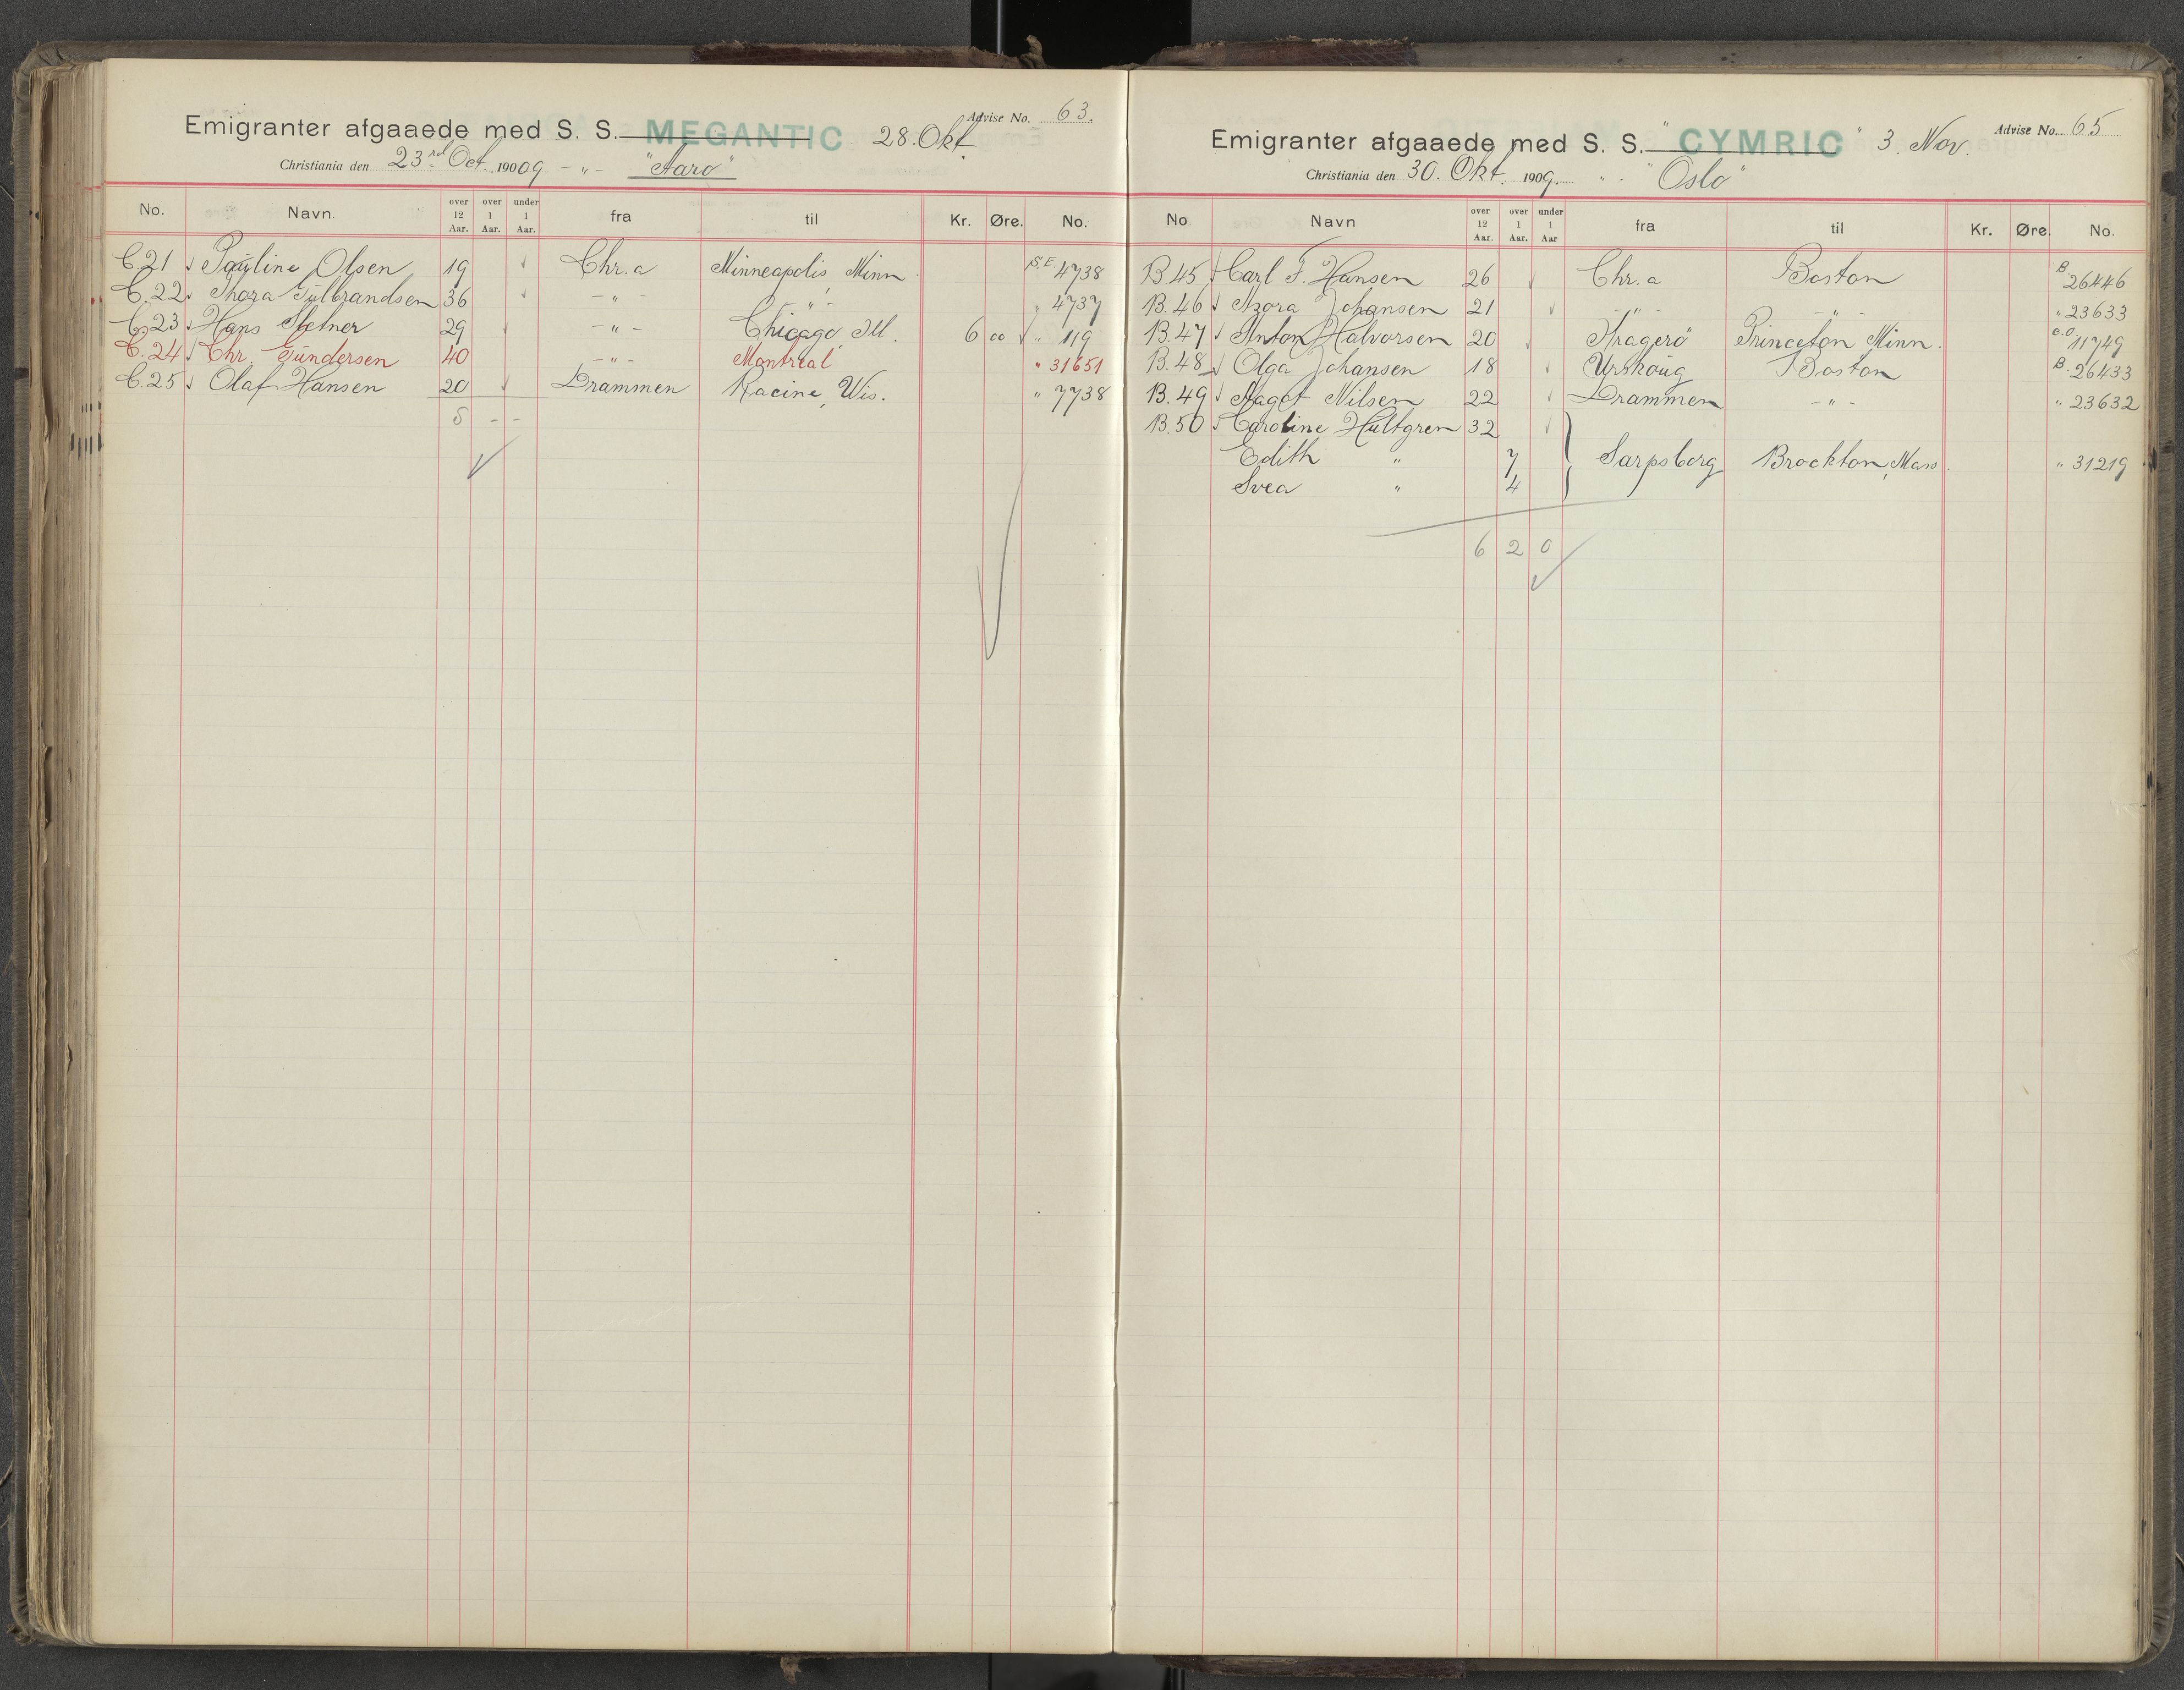 Advise No. 63.
Emigranter afgaaede med S. S. MEGANTIC 28. Okt.
Christiania den 23rd Oct. 190 09 - " - "Aaro"
No. Navn. over 12 Aar. over 1 Aar. under 1 Aar. fra til Kr. Øre. No.
C.21 Pauline Olsen 19 Chr.a Minneapolis, Minn. S.E 4738
C.22 Thora Gulbrandsen 36 - " - - " - " 4737
C.23 Hans 29 - " - Chicago, Ill. 6 00 " 119
C.24 Chr. Gundersen 40 - " - Montreal " 31651
C.25 Olaf Hansen 20 Drammen Racine, Wis. " 7738
5 - -
Advise No. 65
Emigranter afgaaede med S. S. "CYMRIC" 3. Nov.
Christiania den 30. Okt. 1909. " - "Oslo"
No Navn over 12 Aar. over 1 Aar. under 1 Aar fra til Kr. Øre. No.
B.45 Carl F. Hansen 26 Chr.a Boston B 26446
B.46 Johansen 21 - " - - " - " 23633
B.47 Anton Halvorsen 20 Kragerö Princeton Minn. O.O 11749
B.48 Olga Johansen 18 Urskoug Boston B. 26433
B.49 Aagot Nilsen 22 Drammen - " - " 23632
B.50 Caroline Hultgren 32
Edith " 7 Sarpsborg Brockton, Mass. " 31219
Svea " 4
6 2 0